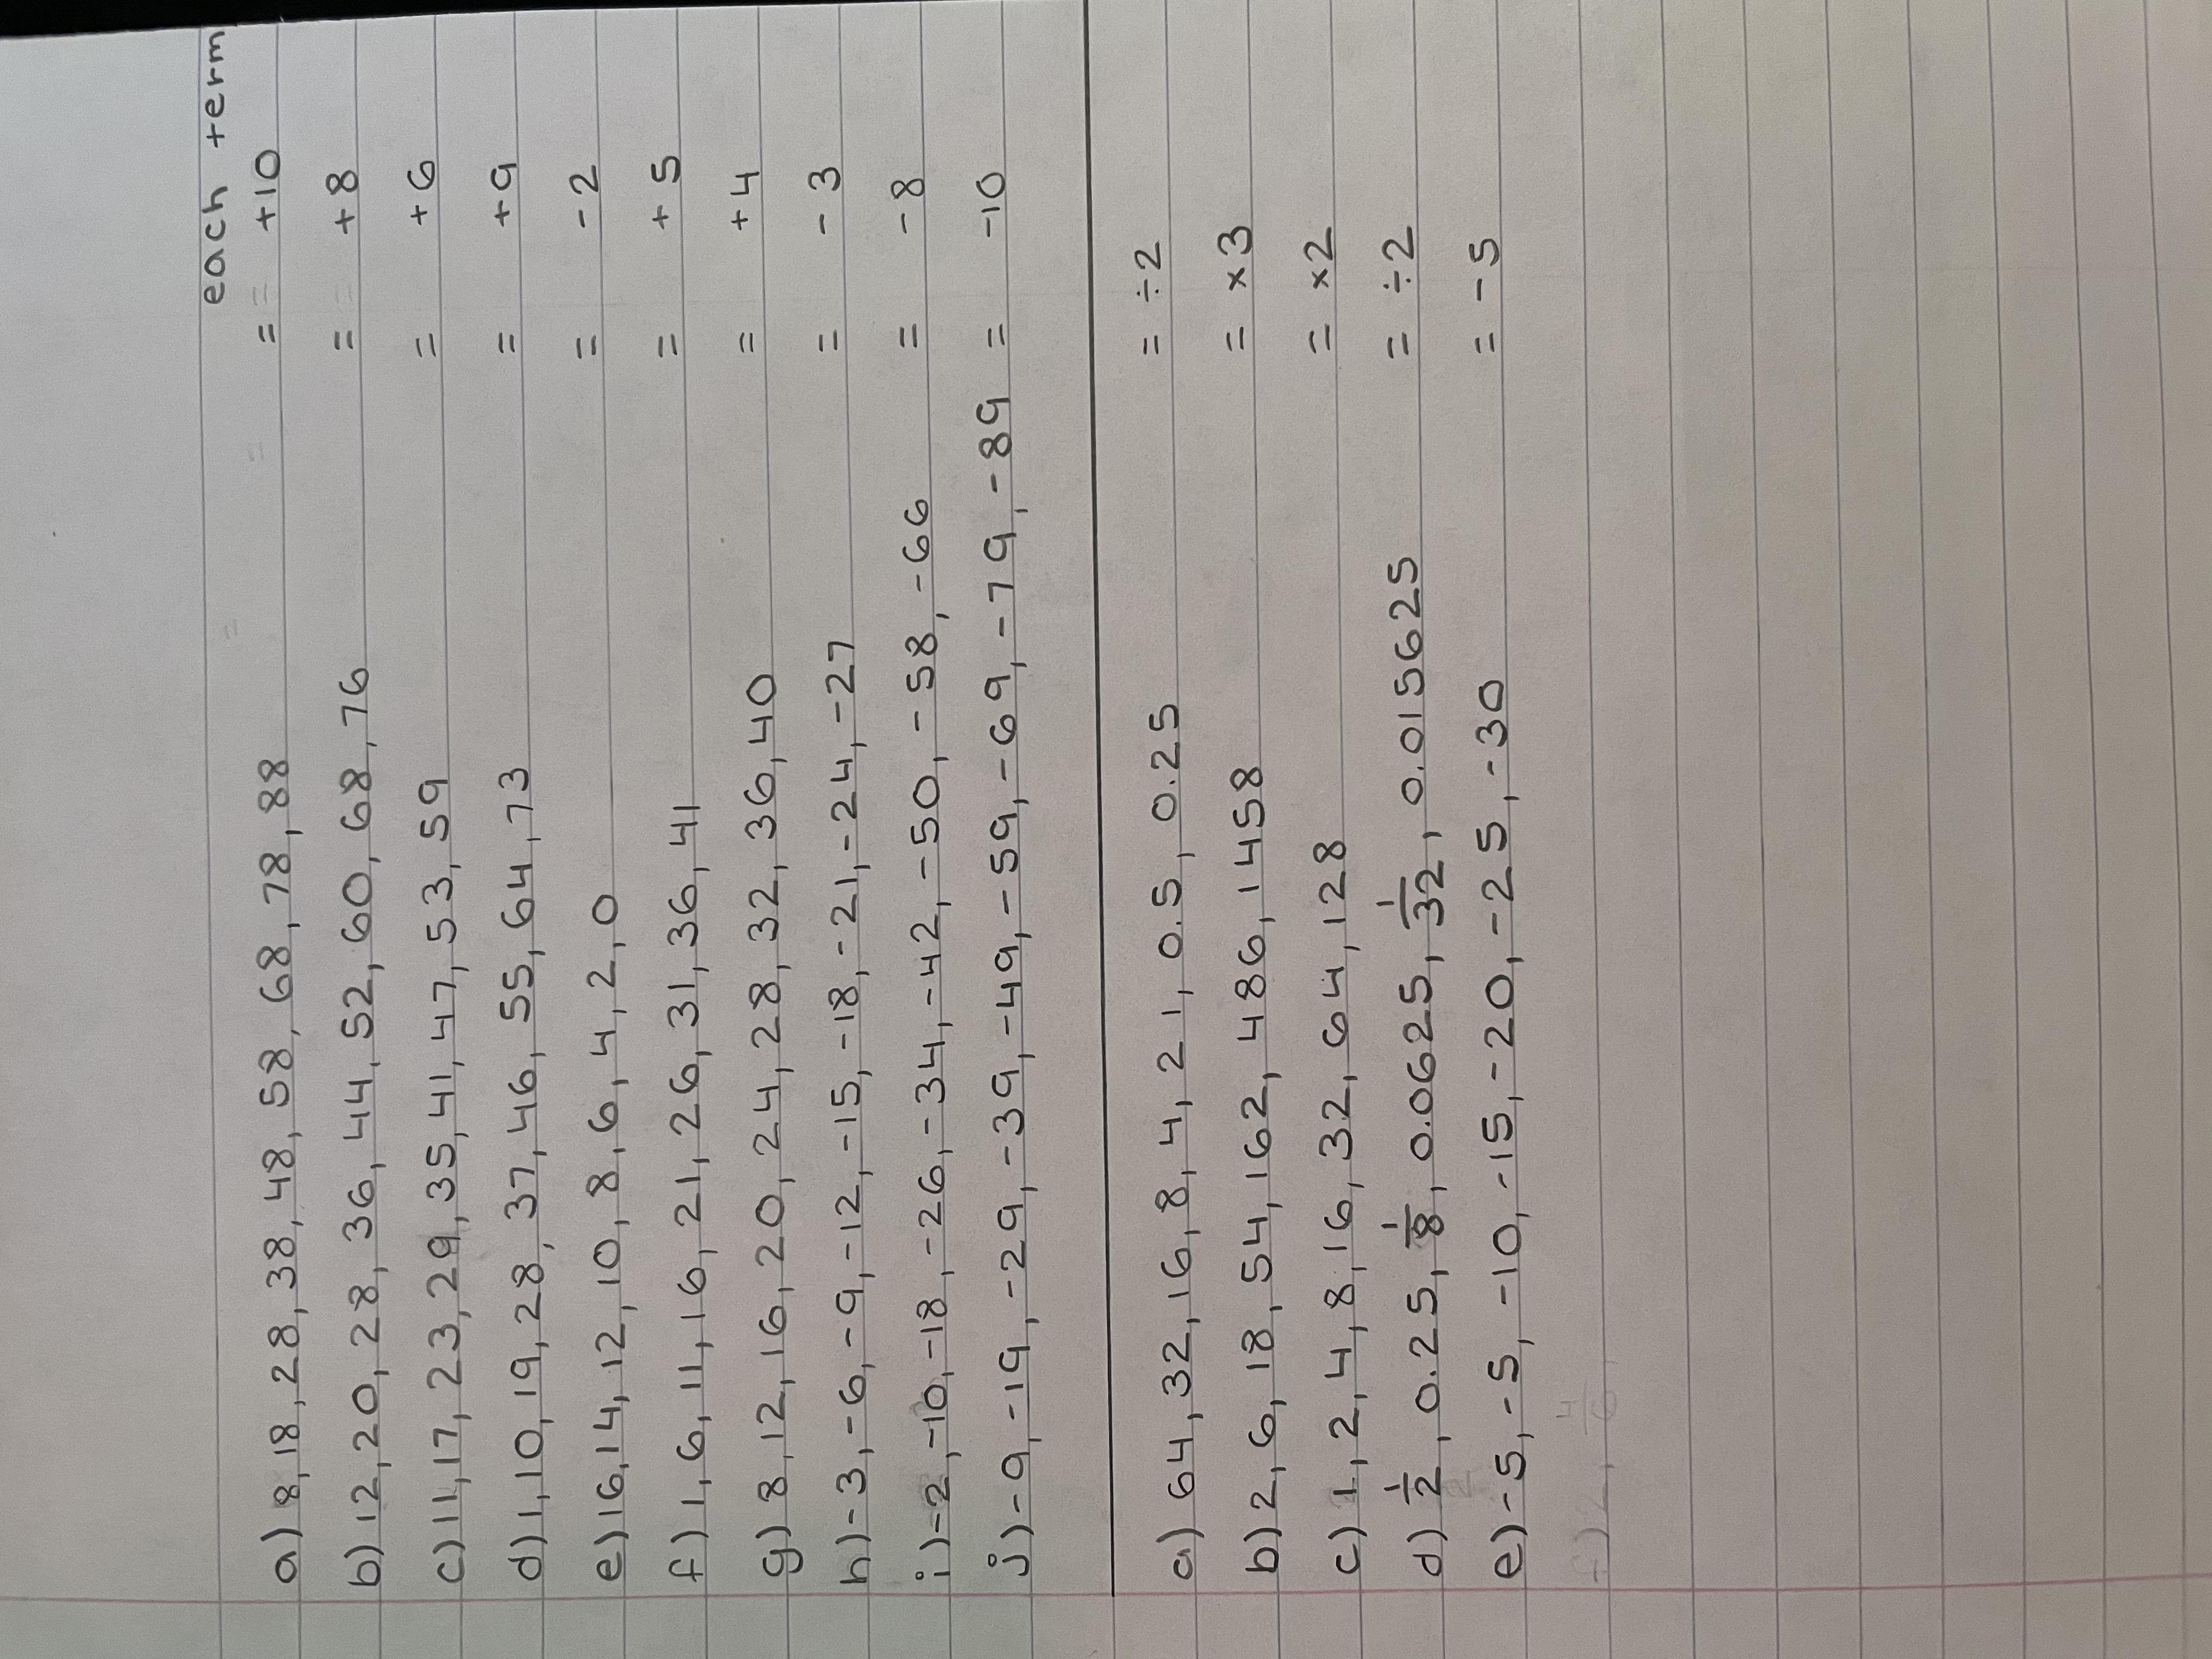 each term
a) 8, 18, 28, 38, 48, 58, 68, 78, 88 = = +10
b) 12, 20, 28, 36, 44, 52, 60, 68, 76 = +8
c) 11, 17, 23, 29, 35, 41, 47, 53, 59 = +6
d) 1, 10, 19, 28, 37, 46, 55, 64, 73 = +9
e) 16, 14, 12, 10, 8, 6, 4, 2, 0 = -2
f) 1, 6, 11, 16, 21, 26, 31, 36, 41 = +5
g) 8, 12, 16, 20, 24, 28, 32, 36, 40 = +4
h) -3, -6, -9, -12, -15, -18, -21, -24, -27 = -3
i) -2, -10, -18, -26, -34, -42, -50, -58, -66 = -8
j) -9, -19, -29, -39, -49, -59, -69, -79, -89 = -10
a) 64, 32, 16, 8, 4, 2 1, 0.5, 0.25 = ÷2
b) 2, 6, 18, 54, 162, 486, 1458 = ×3
c) 1, 2, 4, 8, 16, 32, 64, 128 = ×2
d) 1/2, 0.25, 1/8, 0.0625, 1/32, 0.015625 = ÷2
e) -5, -5, -10, -15, -20, -25, -30 = -5